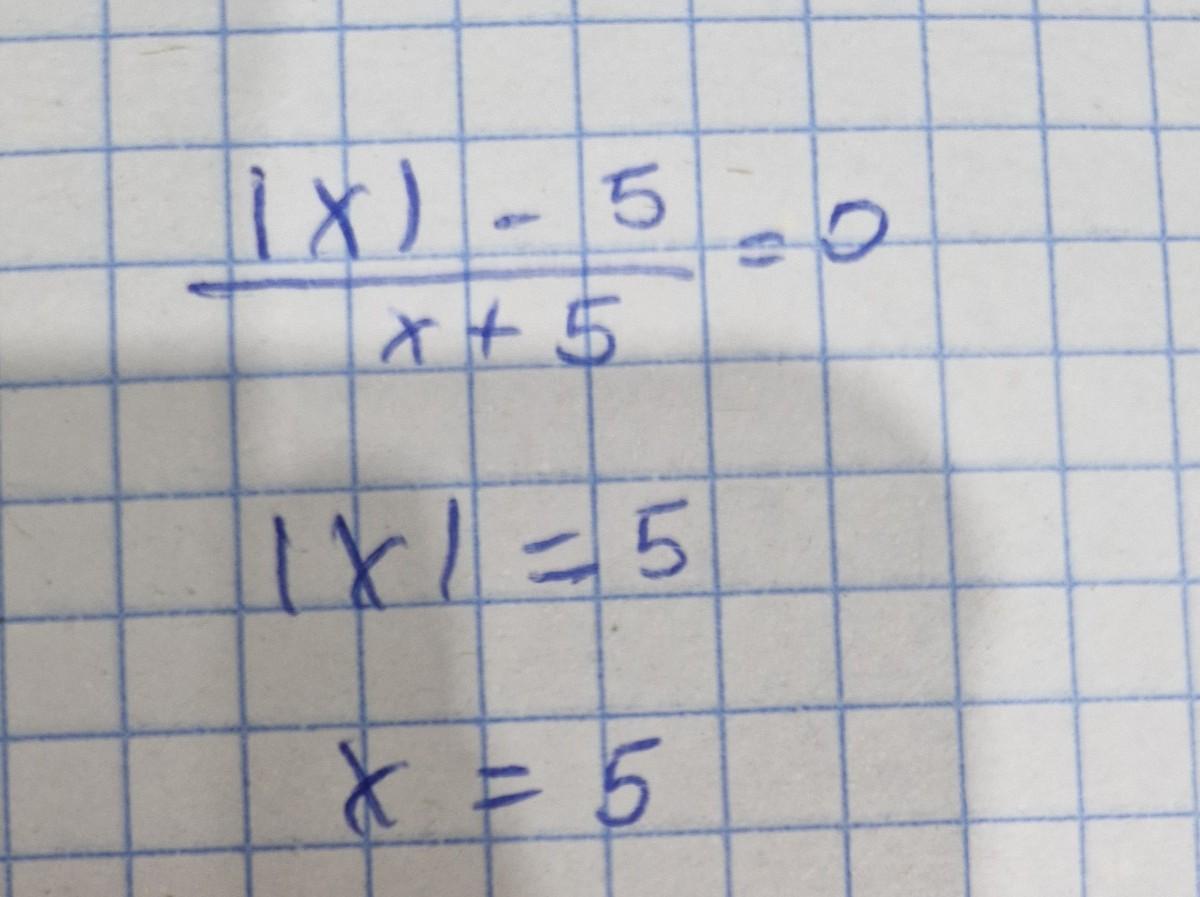 |x| - 5
x + 5
= 0
|x| = 5
x = 5